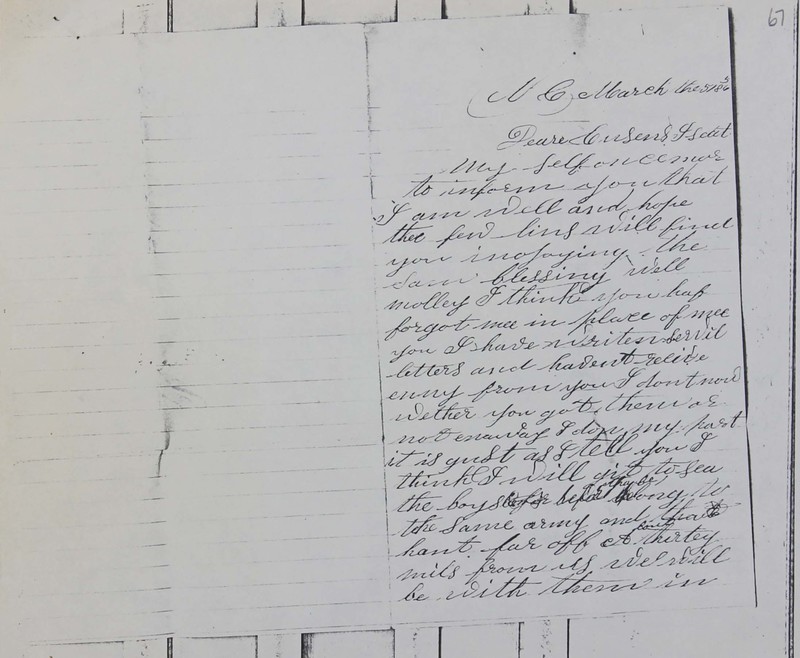 67
N C March the
Deare Cusens I seat
My self once more
to inform you that
I am well and hope
thee few lins will find
you inojoying the
Sam blessing Well
molley I think you haf
forgot mee in place of mee
you I have writen servil
letters and havent
enny from you I dont now
wether you got them or
not enaway I don my part
it is gust as I tell you I
think I will git to sea
the boys before
the Same army and
hant far off
mils from us we will
be with them in